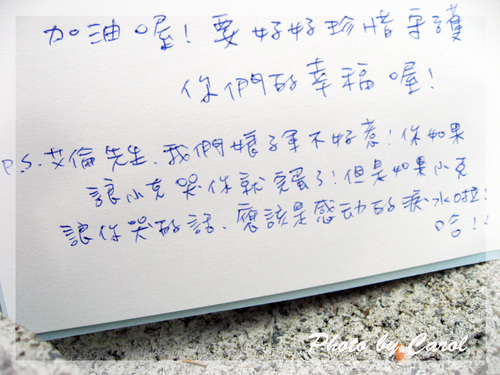 加油喔！要好好珍惜守護
你們的幸福喔！
P.S.艾倫先生.我們娘子軍不好惹！你如果
讓小克哭你就完蛋了！但是如果小克
讓你哭的話.應該是感动的淚水啦！
哈！！
Photo by Carol